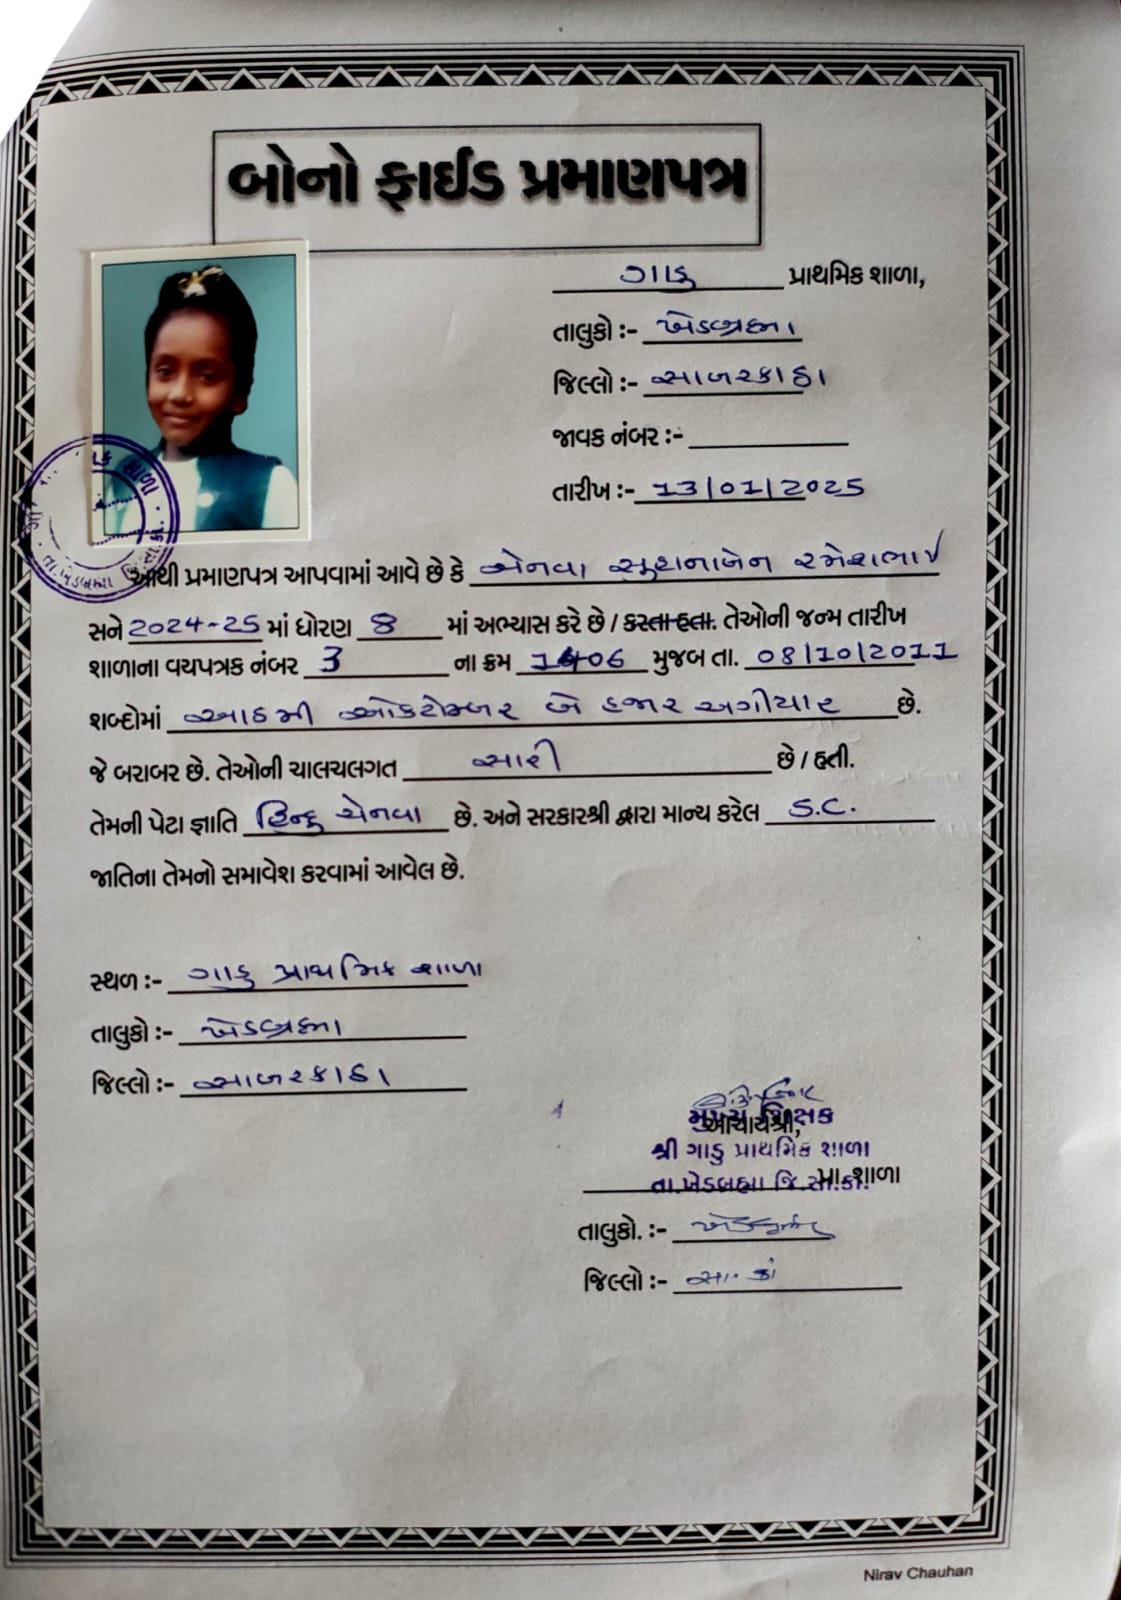 બોનો ફાઈડ પ્રમાણપત્ર
ગાડુ પ્રાથમિક શાળા,
તાલુકો :- ખેડબ્રહ્મા
જિલ્લો :- સાબરકાંઠા
જાવક નંબર :-
તારીખ :- 13/01/2025
આથી પ્રમાણપત્ર આપવામાં આવે છે કે ચેનવા રમેશભાઈ
સને 2024-25 માં ધોરણ 8 માં અભ્યાસ કરે છે / કરતા હતા. તેઓની જન્મ તારીખ
શાળાના વયપત્રક નંબર 3 ના ક્રમ 1406 મુજબ તા. 08/10/2011
શબ્દોમાં આઠમી ઓકટોમ્બર બે હજાર અગીયાર છે.
જે બરાબર છે. તેઓની ચાલચલગત સારી છે / હતી.
તેમની પેટા જ્ઞાતિ હિન્દુ ચેનવા છે. અને સરકારશ્રી દ્વારા માન્ય કરેલ S.C.
જાતિના તેમનો સમાવેશ કરવામાં આવેલ છે.
સ્થળ :- ગાડુ પ્રાથમિક શાળા
તાલુકો :- ખેડબ્રહ્મા
જિલ્લો :- સાબરકાંઠા
મુખ્ય શિક્ષક
આચાર્યશ્રી,
શ્રી ગાડુ પ્રાથમિક શાળા
તા.ખેડબ્રહ્મા જિ.સા.કાં.
પ્રા. શાળા
તાલુકો. :- ખેડબ્રહ્મા
જિલ્લો :- સા.કાં
Nirav Chauhan